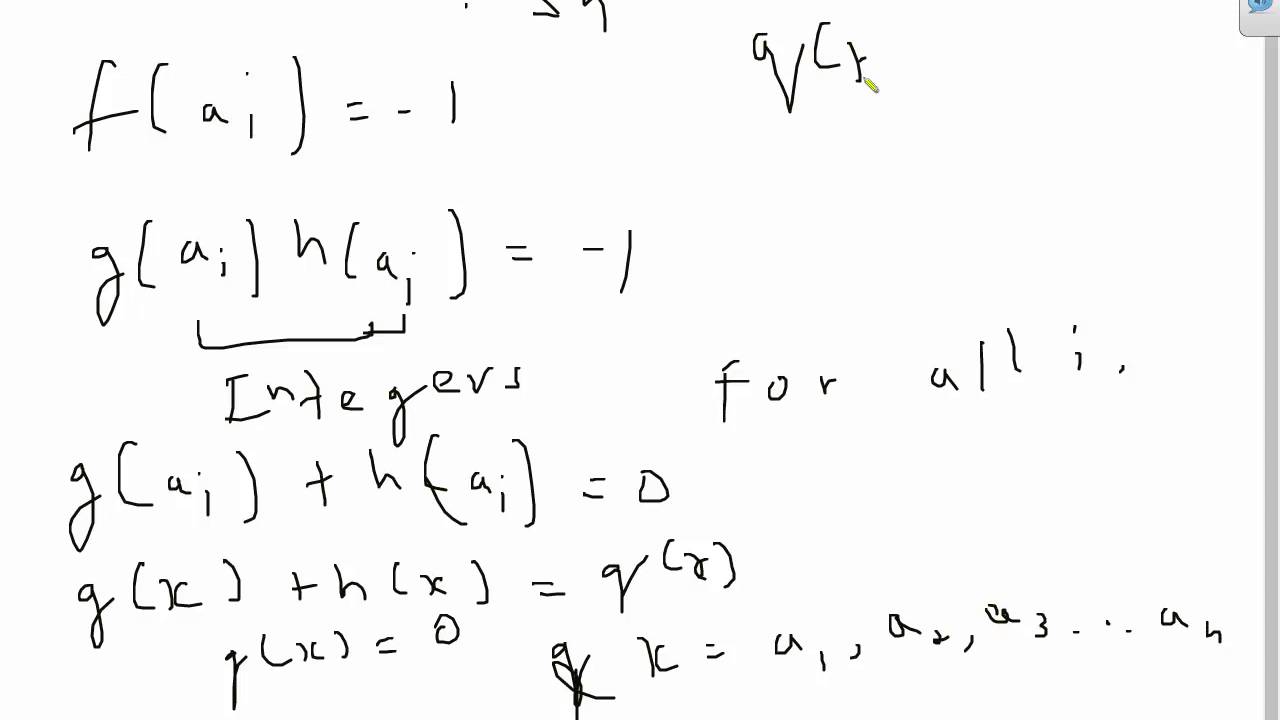 q(x
f(ai) = -1
g(ai) h(ai) = -1
Integers
for all i.
g(ai) + h(ai) = 0
g(x) + h(x) = q(x)
q(x) = 0
x = a1, a2, a3 ... an